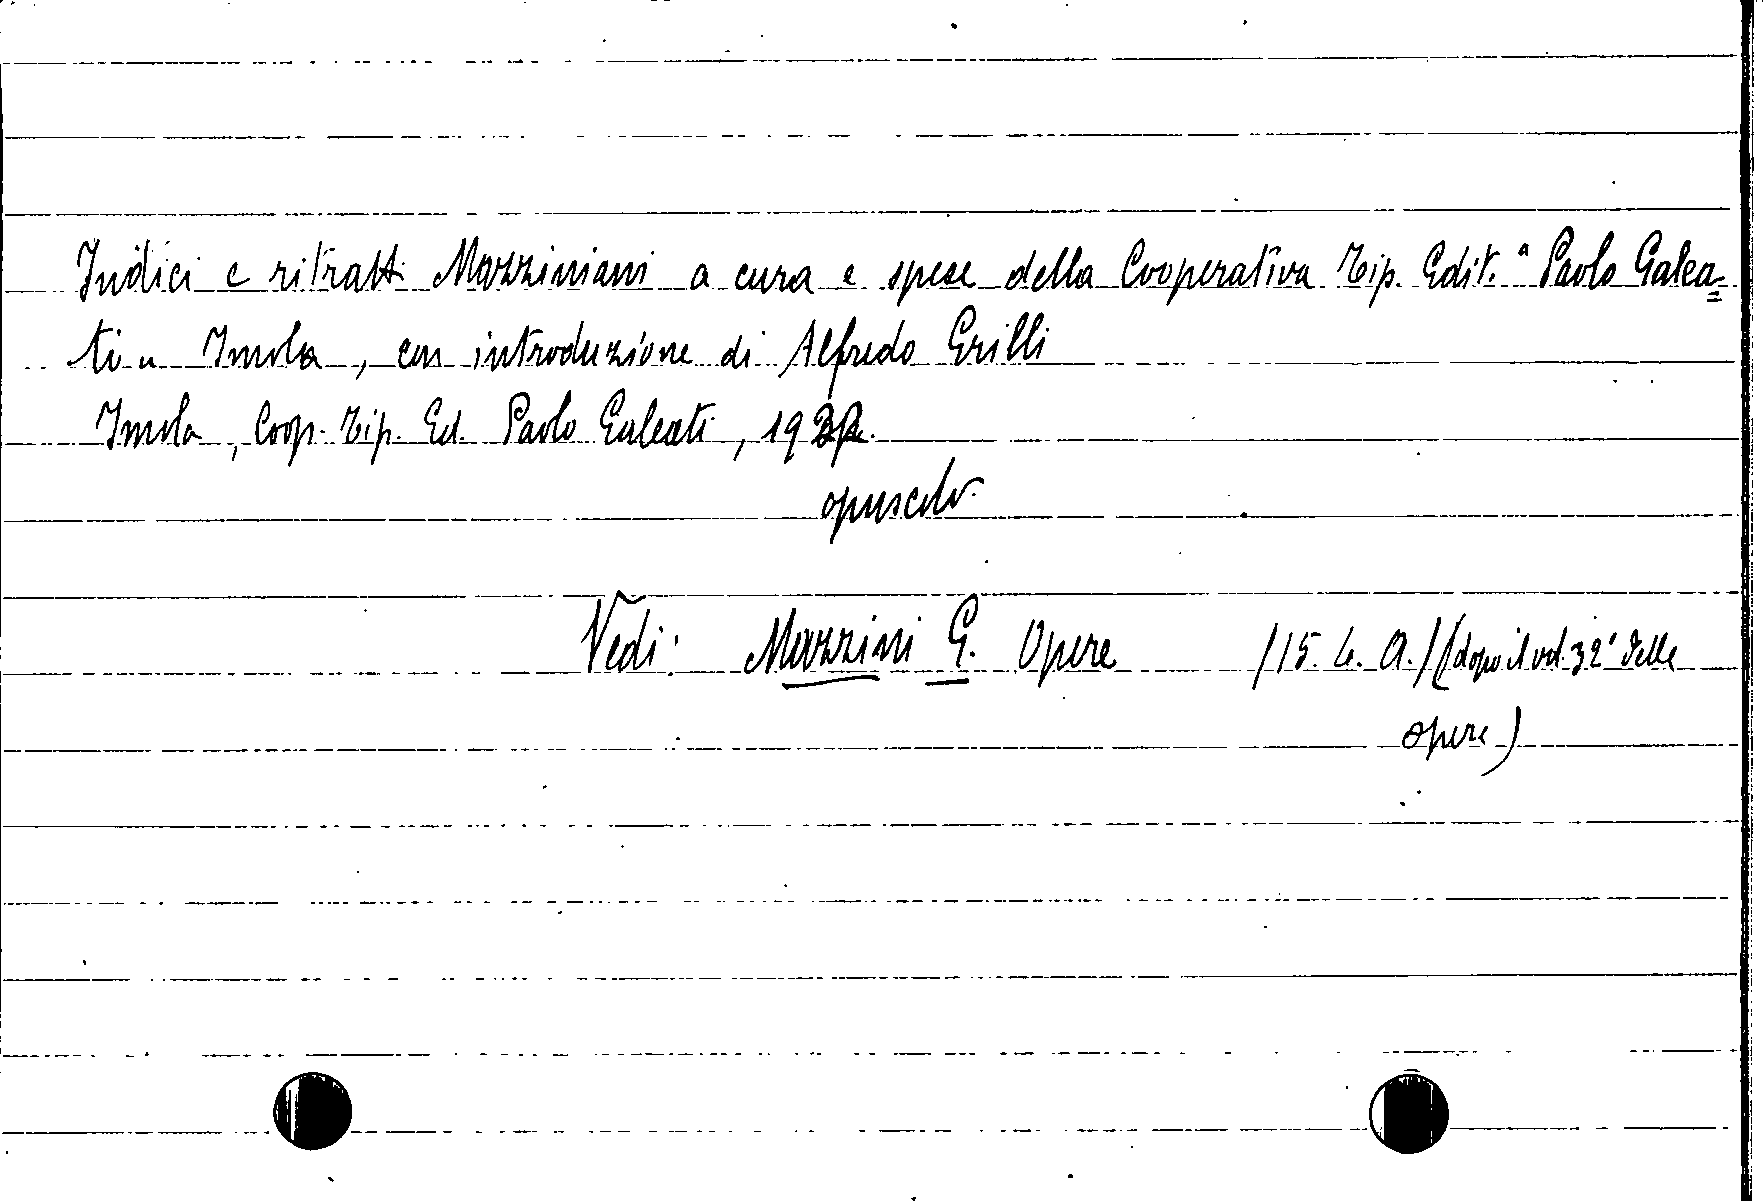 Indici e ritratti Mazziniani a cura e spese della Cooperativa Tip. Edit. "Paolo Galea=
ti" Imola, con introduzione di Alfredo Grilli
Imola, Coop. Tip. Ed. Paolo Galeati, 19
opuscolo.
Vedi: Mazzini G. Opere /15. G. A./ (dopo il vol. 32° delle
opere)